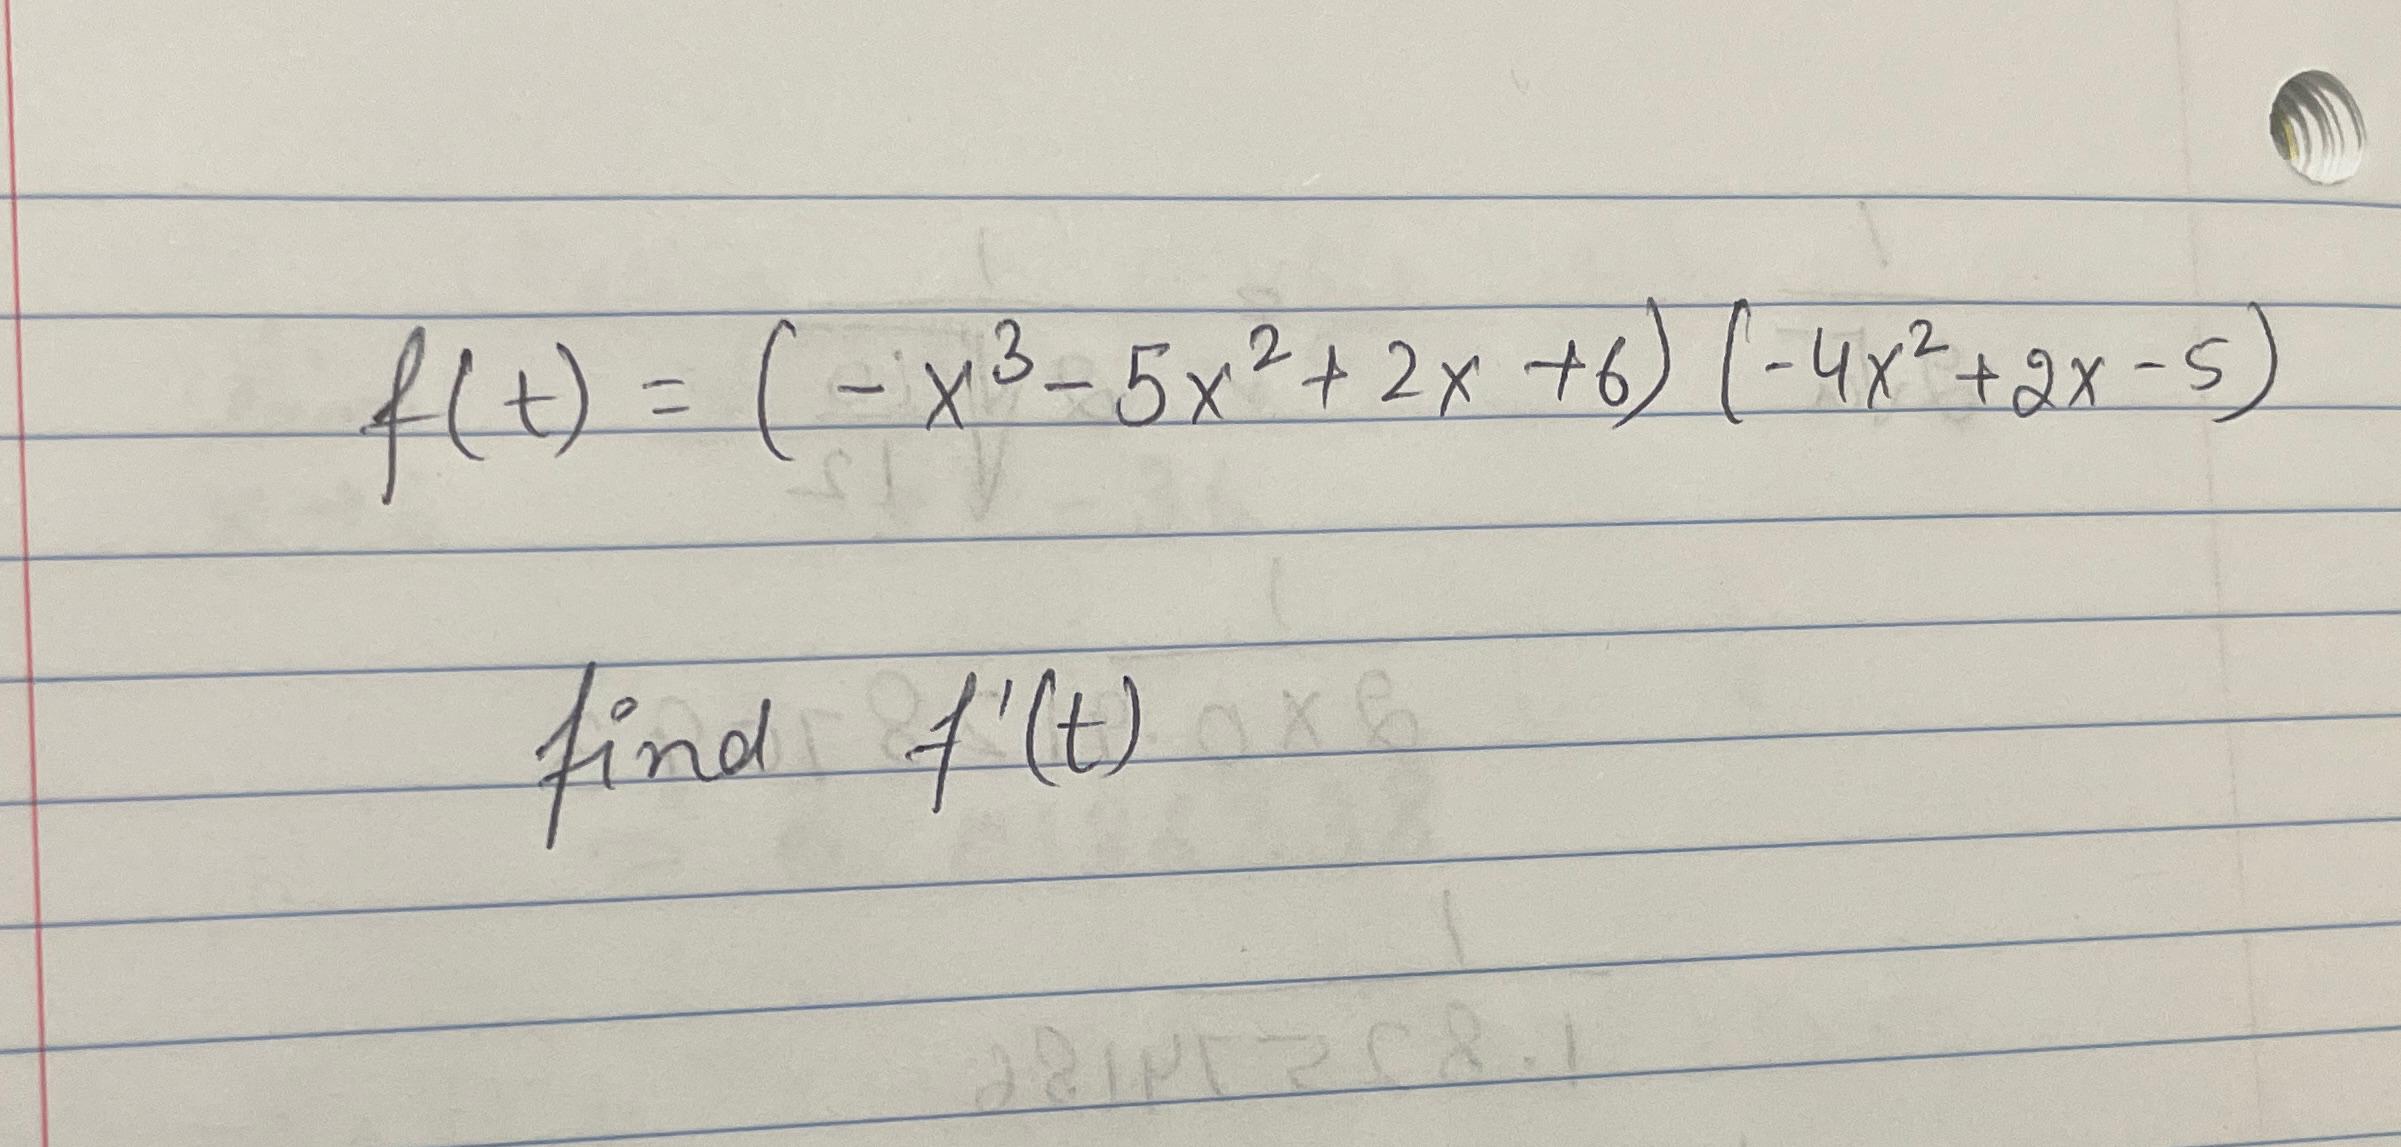 f(t) = (-x³-5x²+2x+6)(-4x²+2x-5)
find f'(t)